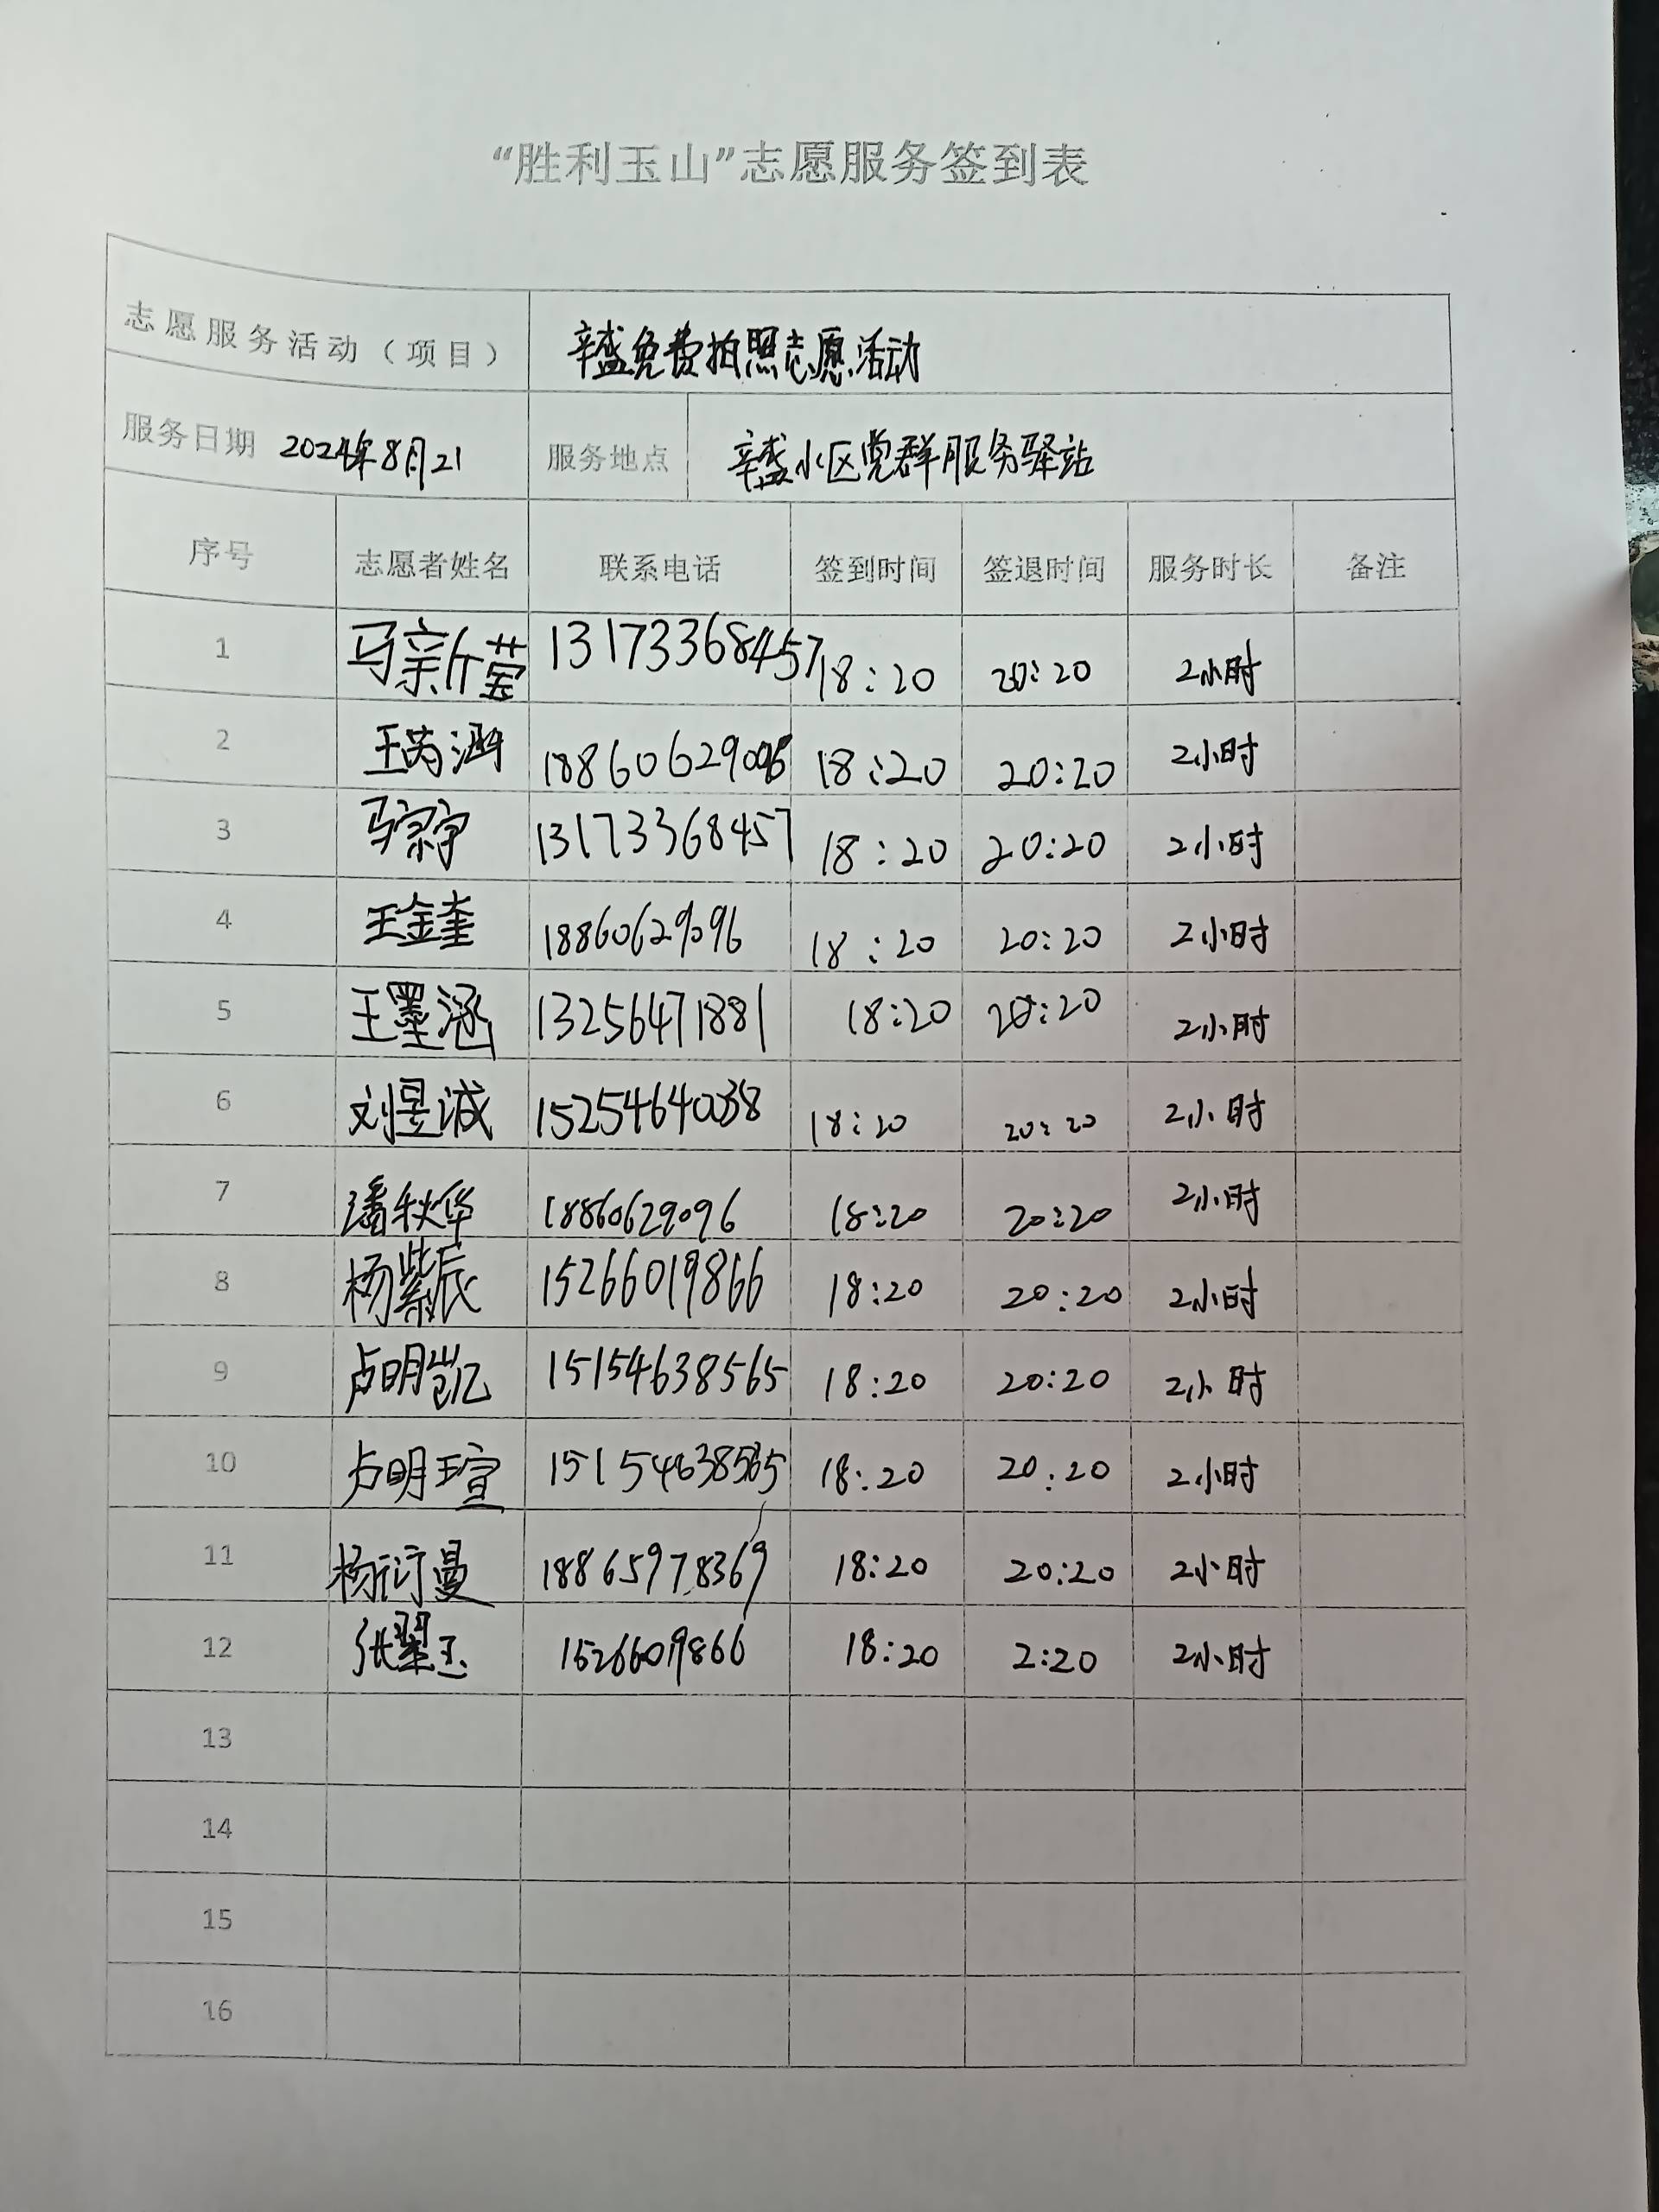 “胜利玉山”志愿服务签到表
志愿服务活动（项目） 辛盛免费拍照志愿活动
服务日期 2024年8月21 服务地点 辛盛小区党群服务驿站
序号 志愿者姓名 联系电话 签到时间 签退时间 服务时长 备注
1 马新莹 13173368457 18:20 20:20 2小时
2 王芮涵 18860629096 18:20 20:20 2小时
3 马宗宇 13173368457 18:20 20:20 2小时
4 王金奎 18860629096 18:20 20:20 2小时
5 王墨涵 13256471881 18:20 20:20 2小时
6 刘昱诚 15254640038 18:20 20:20 2小时
7 潘秋华 18860629096 18:20 20:20 2小时
8 杨紫辰 15266019866 18:20 20:20 2小时
9 卢明凯 15154638565 18:20 20:20 2小时
10 卢明瑄 15154638565 18:20 20:20 2小时
11 杨曼 18865978369 18:20 20:20 2小时
12 张翠玉 15266019866 18:20 2:20 2小时
13
14
15
16